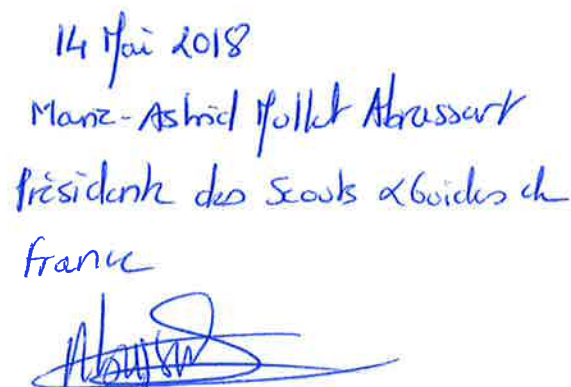 14 Mai 2018
Marie-Astrid Mollet Abrassart
Présidente des Scouts & Guides de
France